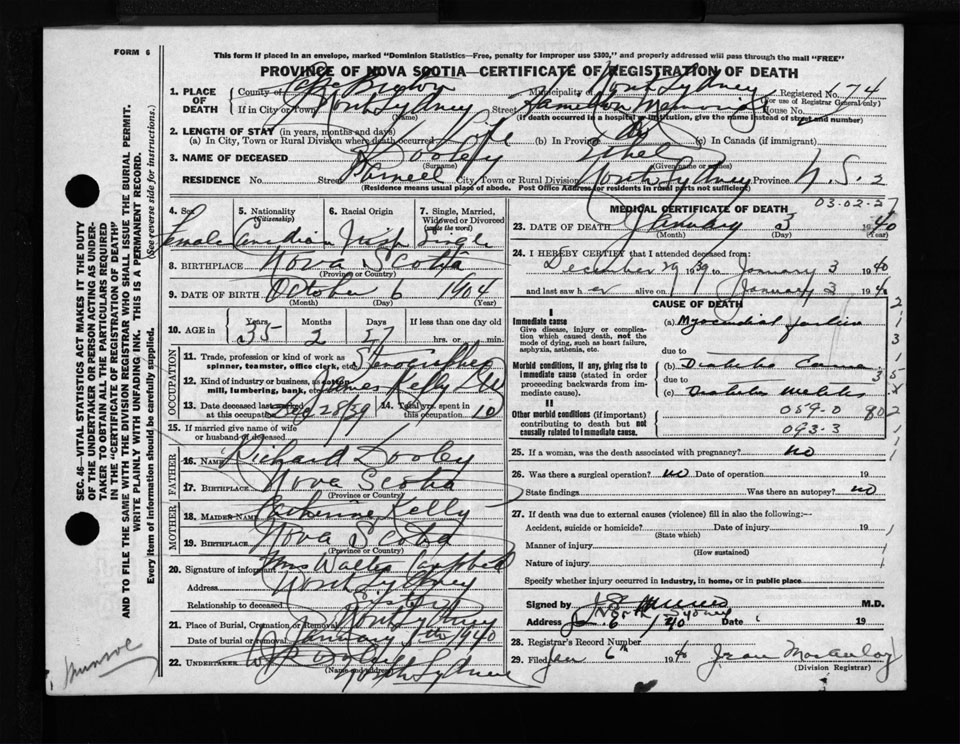 FORM 6
This form if placed in an envelope, marked "Dominion Statistics—Free, penalty for improper use $300," and properly addressed will pass through the mail "FREE"
PROVINCE OF NOVA SCOTIA—CERTIFICATE OF REGISTRATION OF DEATH
1. PLACE OF DEATH
County of Cape Breton Municipality of North Sydney Registered No. 74
(For use of Registrar General only)
If in City or Town North Sydney Street Hamilton Memorial House No.
(Name) (If death occurred in a hospital or institution, give the name instead of street and number)
2. LENGTH OF STAY (in years, months and days)
(a) In City, Town or Rural Division where death occurred Life (b) In Province (c) In Canada (if immigrant)
3. NAME OF DECEASED Dooley Ethel
(Surname) (Given name or names)
RESIDENCE No. Street City, Town or Rural Division North Sydney Province N.S. 2
(Residence means usual place of abode. Post Office Address for residents in rural parts not sufficient)
4. Sex 5. Nationality (Citizenship) 6. Racial Origin 7. Single, Married, Widowed or Divorced (write the word)
Female Canadian Irish Single
8. BIRTHPLACE Nova Scotia
(Province or Country)
9. DATE OF BIRTH October 6 1904
(Month) (Day) (Year)
10. AGE in Years Months Days If less than one day old
35 2 27 hrs. or min.
OCCUPATION
11. Trade, profession or kind of work as spinner, teamster, office clerk, etc. Stenographer
12. Kind of industry or business, as cotton mill, lumbering, bank, etc. James Kelly
13. Date deceased last worked at this occupation Dec 28/39 14. Total yrs. spent in this occupation 10
15. If married give name of wife or husband of deceased
FATHER
16. NAME Richard Dooley
17. BIRTHPLACE Nova Scotia
(Province or Country)
MOTHER
18. MAIDEN NAME Catherine Kelly
19. BIRTHPLACE Nova Scotia
(Province or Country)
20. Signature of informant Mrs Walter Campbell
Address North Sydney
Relationship to deceased Sister
21. Place of Burial, Cremation or Removal North Sydney
Date of burial or removal January 1940
22. UNDERTAKER Dooley
(Name and address)
North Sydney
MEDICAL CERTIFICATE OF DEATH
03-02-27
23. DATE OF DEATH January 3 1940
(Month) (Day) (Year)
24. I HEREBY CERTIFY that I attended deceased from:
December 29 1939 to January 3 1940
and last saw her alive on January 3 1940
CAUSE OF DEATH
I
Immediate cause
Give disease, injury or complication which caused death, not the mode of dying, such as heart failure, asphyxia, asthenia, etc.
(a) Myocardial failure
due to
Morbid conditions, if any, giving rise to immediate cause (stated in order proceeding backwards from immediate cause).
(b) Diabetic Coma
due to
(c) Diabetes Mellitus
II
Other morbid conditions (if important) contributing to death but not causally related to immediate cause.
059-0 802
093-3
25. If a woman, was the death associated with pregnancy? no
26. Was there a surgical operation? no Date of operation 19
State findings Was there an autopsy? no
27. If death was due to external causes (violence) fill in also the following:—
Accident, suicide or homicide? Date of injury 19
(State which)
Manner of injury
(How sustained)
Nature of injury
Specify whether injury occurred in industry, in home, or in public place
Signed by M.D.
Address North Sydney Date 19
28. Registrar's Record Number
29. Filed Jan 6th 1940 Jean MacAulay
(Division Registrar)
SEC. 46—VITAL STATISTICS ACT MAKES IT THE DUTY OF THE UNDERTAKER OR PERSON ACTING AS UNDERTAKER TO OBTAIN ALL THE PARTICULARS REQUIRED IN THE "CERTIFICATE OF REGISTRATION OF DEATH" AND TO FILE THE SAME WITH THE DIVISION REGISTRAR WHO SHALL ISSUE THE BURIAL PERMIT.
WRITE PLAINLY WITH UNFADING INK. THIS IS A PERMANENT RECORD.
Every item of information should be carefully supplied. (See reverse side for instructions.)